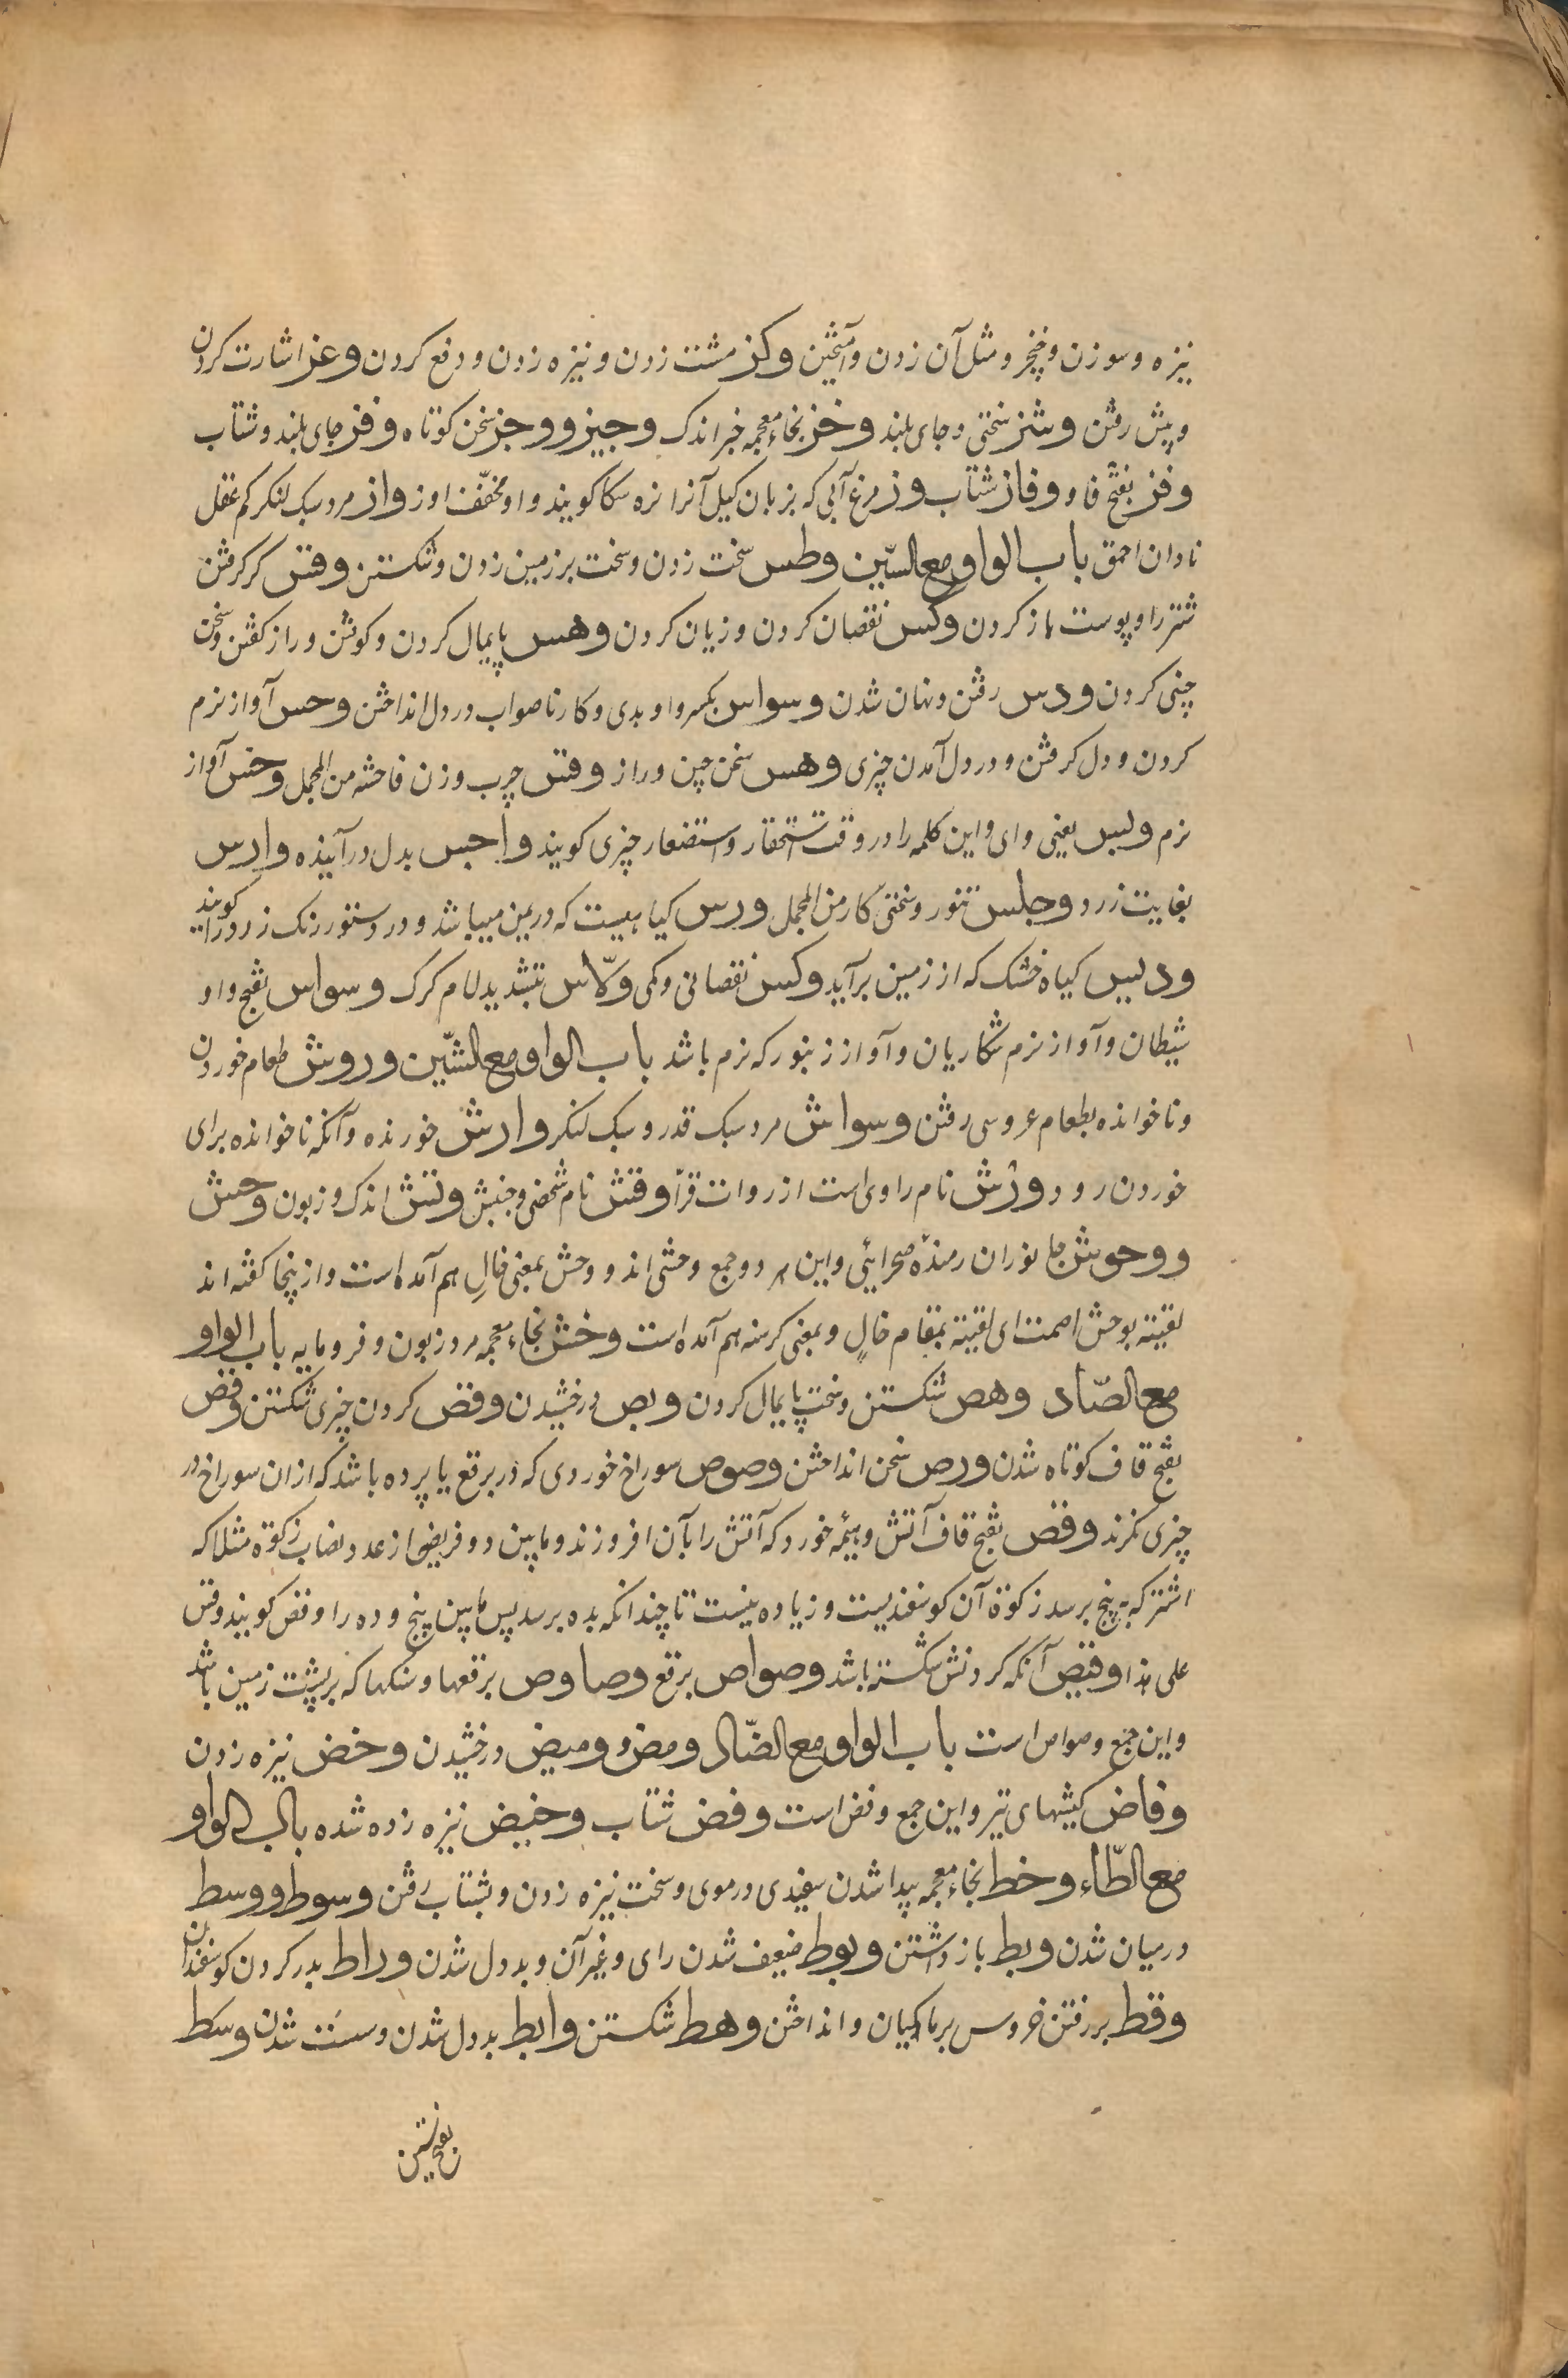 نیزه و سوزن و خنجر و مثل آن زدن و آمیختن وکز مشت زدن و نیزه زدن و دفع کردن وعز اشارت کردن
و پیش رفتن وشز سختی و جای بلند وخز بخاء معجمه خبر اندک وجیز و وجز سخن کوتاه وفز جای بلند و شتاب
وفز بفتح فا و وفاز شتاب وز مرغ آبی که بزبان کیل آنرا نزه سکا کویند و او مخفّف اوز وازمرد سبک لنکر کم عقل
نادان احمق باب الواو مع السّین وطس سخت زدن و سخت بر زمین زدن و شکستن وقس کر کرفتن
شتر را و پوست باز کردن وکس نقصان کردن و زیان کردن وهس پایمال کردن و کوفتن و راز کفتن و سخن
چینی کردن ودس رفتن و نهان شدن وسواس بکسر واو بدی و کار ناصواب در دل انداختن وجس آواز نرم
کردن و دل کرفتن و در دل آمدن چیزی وهس سخن چین و راز وقس چرب و زن فاحشه من المجمل وجس آواز
نرم ویس یعنی وای و این کلمه را در وقت استحقار و استصغار چیزی کویند واجس بدل در آینده وارس
بغایت زرد وطیس تنور و سختی کار من المجمل ورس کیاهیست که در یمن میباشد و در دستور رنک زرد را کویند
ودیس کیاه خشک که از زمین برآید وکس نقصانی و کمی ولاّس بتشدید لام کرک وسواس بفتح واو
شیطان و آواز نرم شکاریان و آواز زنبور که نرم باشد باب الواو مع الشّین وروش طعام خوردن
و ناخوانده بطعام عروسی رفتن وسواش مرد سبک قدر و سبک لنکر وارش خورنده و آنکه ناخوانده برای
خوردن رود ورش نام راوی است از روات قرآن وقش نام شخصی و جنبش وتش اندک و زبون وحش
ووحوش جانوران رمندهٔ صحرائی و این هر دو جمع وحشی اند و وحش بمعنی خالی هم آمده است و ازینجا کفته اند
لقیته بوحش اصمت ای لقیته بمقام خالٍ و بمعنی کرسنه هم آمده است وخش بخاء معجمه مرد زبون و فرومایه باب الواو
مع الصّاد وهص شکستن و سخت پایمال کردن وبص درخشیدن وقص کردن چیزی شکستن وقص
بفتح قاف کوتاه شدن ورص سخن انداختن وصوص سوراخ خوردی که در برقع یا پرده باشد که از ان سوراخ در
چیزی نکرند وقص بفتح قاف آتش و هیمهٔ خورد که آتش را بآن افروزند و مابین دو فریضه از عدد نصاب زکوة مثلا که
اشتر که به پنج برسد زکوة آن کوسفندیست و زیاده نیست تا چندانکه بده برسد پس مابین پنج و ده را وقص کویند وقس
علی هذا وقیص آنکه کردنش شکسته باشد وصواص برقع وصاوص برقعها و سنکها که بر پشت زمین باشد
و این جمع وصواص است باب الواو مع الضّاد ومض و ومیض درخشیدن وخض نیزه زدن
وفاض کیشهای تیر و این جمع وفض است وفض شتاب وخیض نیزه زده شده باب الواو
مع الطّاء وخط بخاء معجمه پیدا شدن سفیدی در موی و سخت نیزه زدن و بشتاب رفتن وسوط ووسط
درمیان شدن وبط باز داشتن وبوط ضعیف شدن رای و غیر آن و بددل شدن وراط بدر کردن کوسفندان
وقط بر رفتن خروس بر ماکیان و انداختن وهط شکستن وابط بددل شدن و سست شدن وسط
بفتحتین